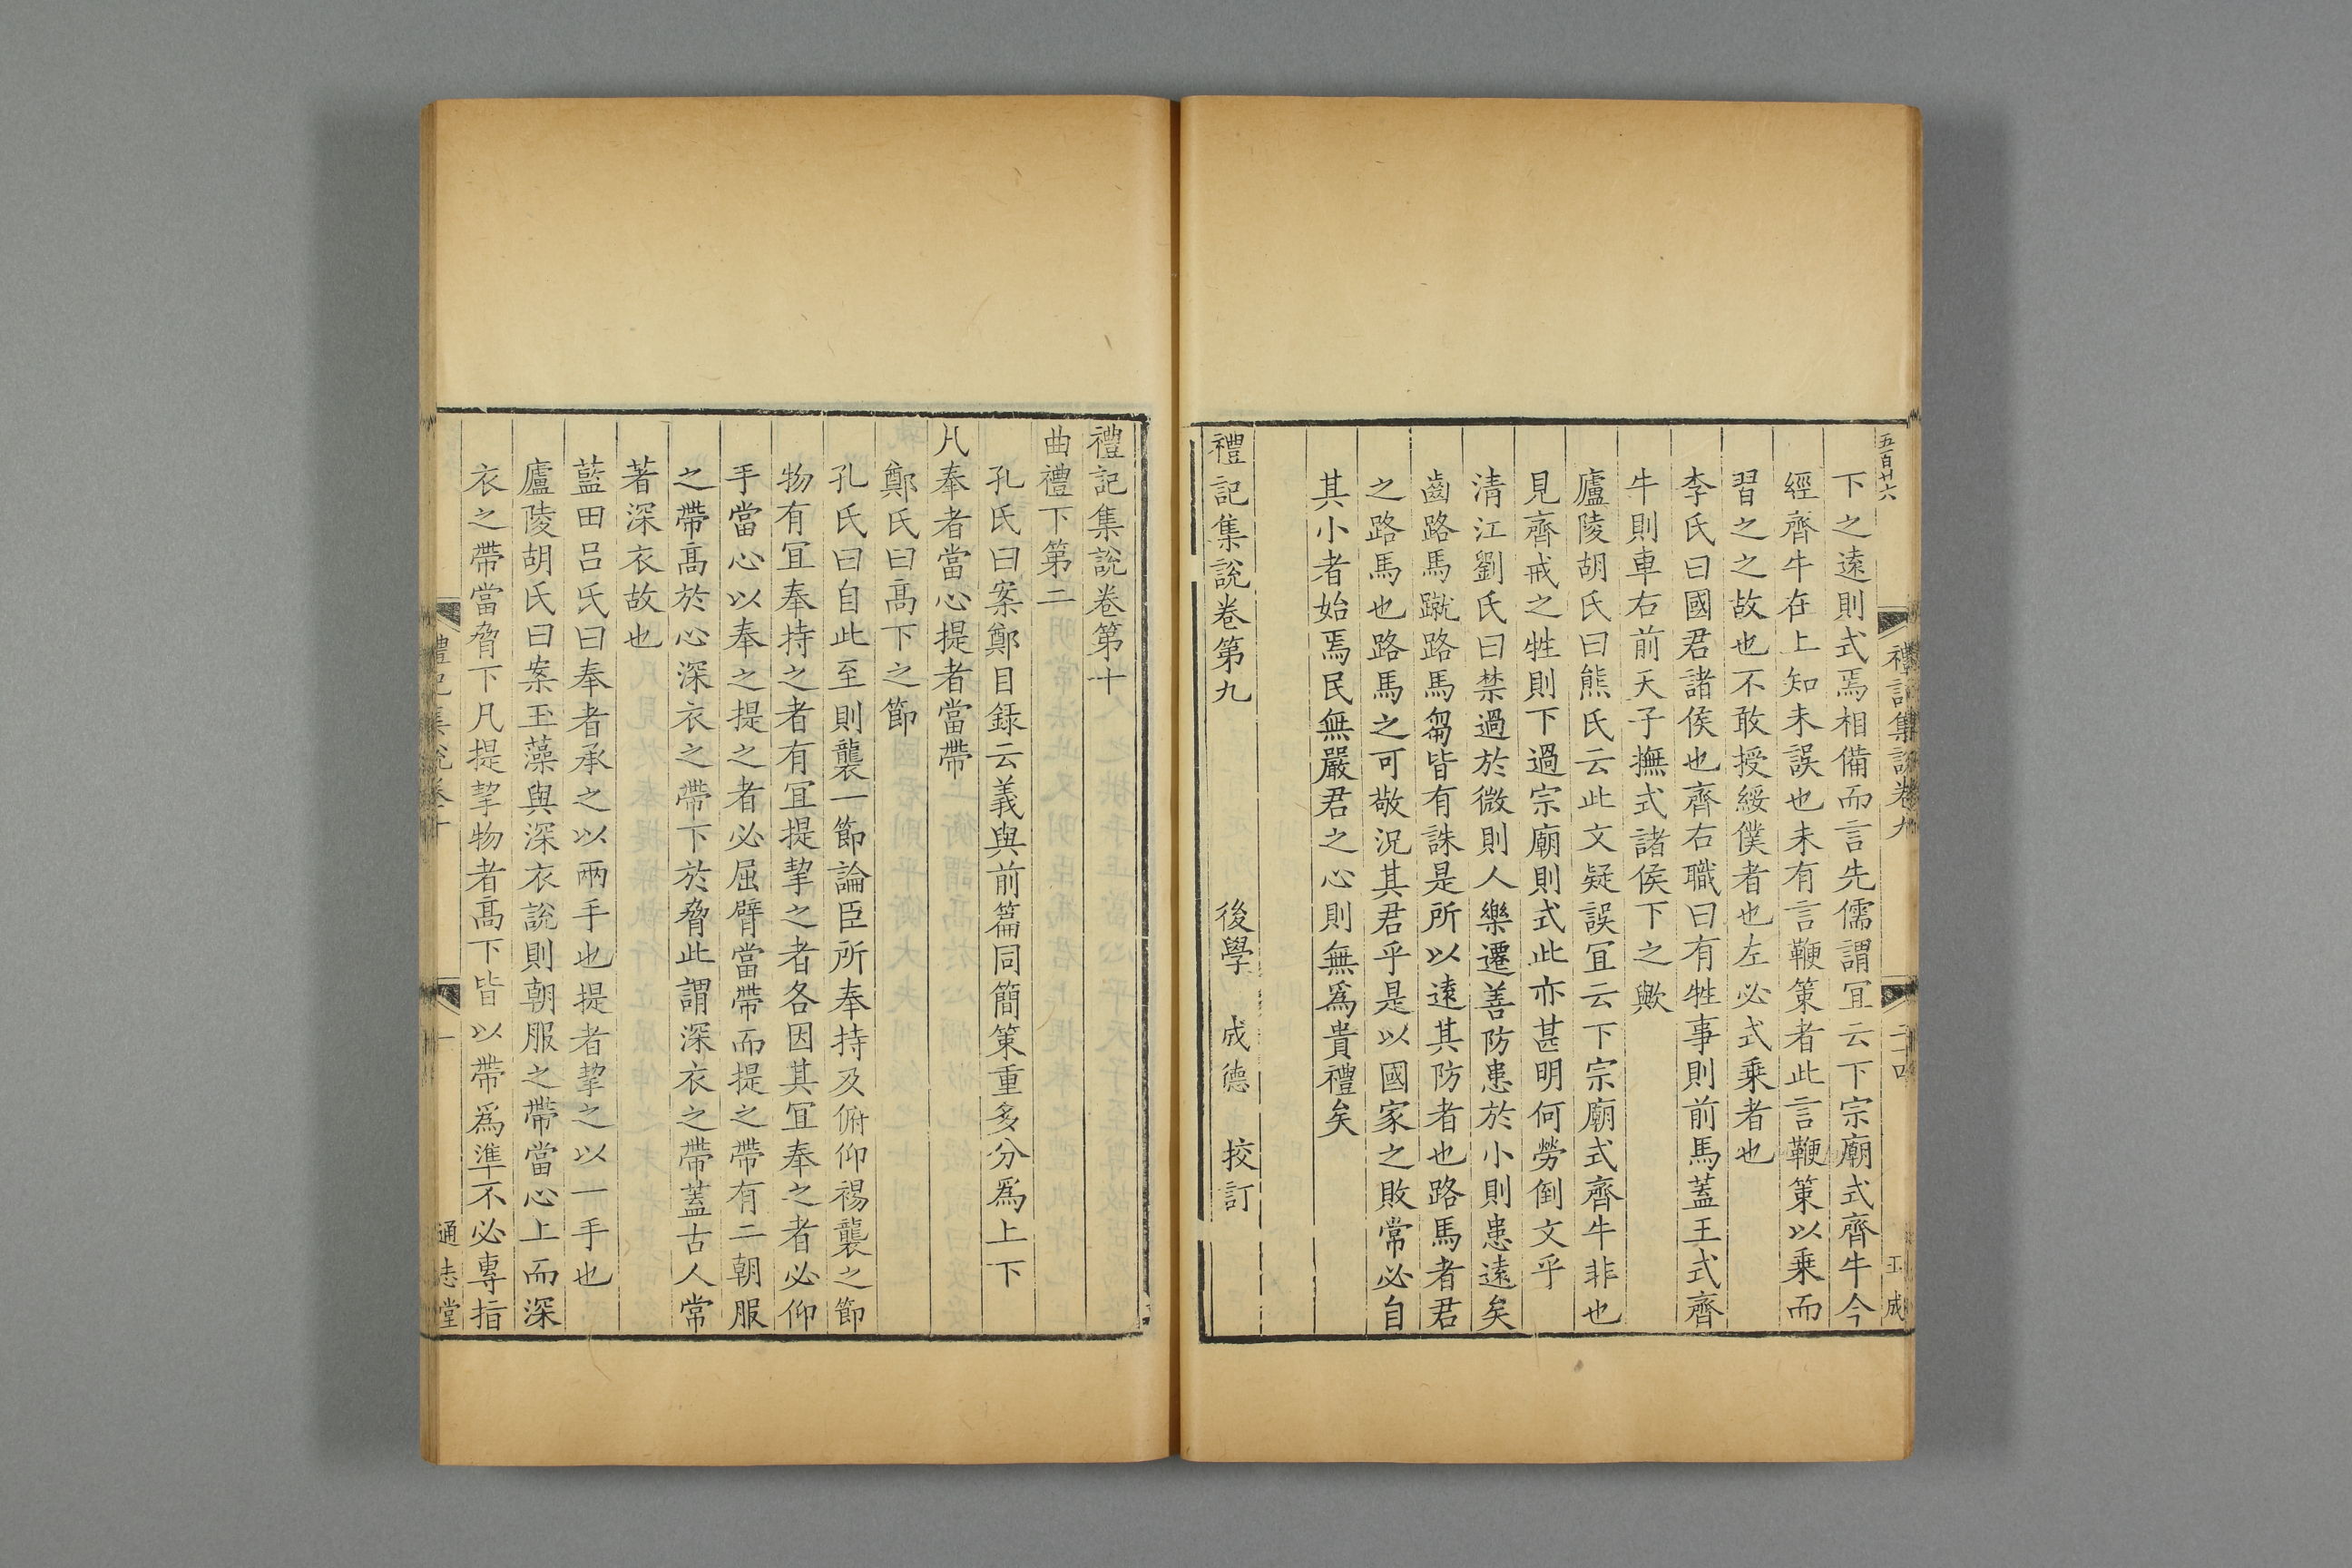 五百廿六
禮記集說卷九
二十四
下之遠則式焉相備而言先儒謂冝云下宗廟式齊牛今
經齊牛在上知未誤也未有言鞭策者此言鞭策以乗而
習之之故也不敢授綏僕者也左必式乗者也
李氏曰國君諸侯也齊右職曰有牲事則前馬蓋王式齊
牛則車右前天子撫式諸侯下之歟
廬陵胡氏曰熊氏云此文疑誤冝云下宗廟式齊牛非也
見齊戒之牲則下過宗廟則式此亦甚明何勞倒文乎
清江劉氏曰禁過於微則人樂遷善防患於小則患遠矣
齒路馬蹴路馬芻皆有誅是所以遠其防者也路馬者君
之路馬也路馬之可敬況其君乎是以國家之敗常必自
其小者始焉民無嚴君之心則無為貴禮矣
禮記集說卷第九
後學 成德 挍訂
禮記集說卷第十
曲禮下第二
孔氏曰案鄭目録云義與前篇同簡策重多分為上下
凡奉者當心提者當帶
鄭氏曰髙下之節
孔氏曰自此至則襲一節論臣所奉持及俯仰裼襲之節
物有冝奉持之者有冝提挈之者各因其冝奉之者必仰
手當心以奉之提之者必屈臂當帶而提之帶有二朝服
之帶髙於心深衣之帶下於脅此謂深衣之帶蓋古人常
著深衣故也
藍田呂氏曰奉者承之以兩手也提者挈之以一手也
廬陵胡氏曰案玉藻與深衣說則朝服之帶當心上而深
衣之帶當脅下凡提挈物者髙下皆以帶為準不必專指
禮記集說卷十
一
通志堂